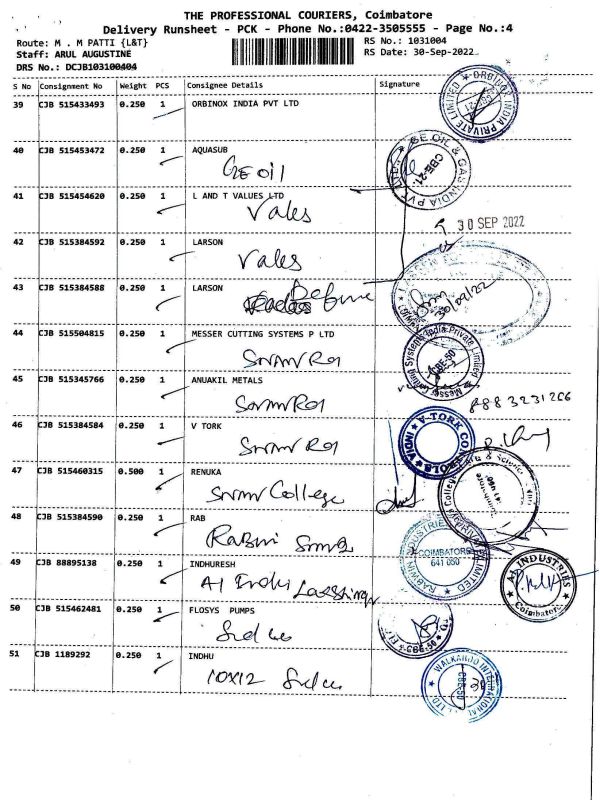 THE PROFESSIONAL COURIERS, Coimbatore
Delivery Runsheet - PCK - Phone No.:0422-3505555 - Page No.:4
Route: M . M PATTI {L&T} RS No.: 1031004
Staff: ARUL AUGUSTINE RS Date: 30-Sep-2022
DRS No.: DCJB103100404
S No Consignment No Weight PCS Consignee Details Signature
39 CJB 515433493 0.250 1 ORBINOX INDIA PVT LTD
ORBINOX INDIA PRIVATE LIMITED
40 CJB 515453472 0.250 1 AQUASUB
GE oil
GE OIL & GAS INDIA PVT
CBE-21.
41 CJB 515454620 0.250 1 L AND T VALUES LTD
Vales
30 SEP 2022
42 CJB 515384592 0.250 1 LARSON
Vales
43 CJB 515384588 0.250 1 LARSON
Define
30/09/22
44 CJB 515504815 0.250 1 MESSER CUTTING SYSTEMS P LTD
Messer Cutting Systems India Private Limited
CBE-50
45 CJB 515345766 0.250 1 ANUAKIL METALS
8883231266
46 CJB 515384584 0.250 1 V TORK
V-TORK CONTROLS INDIA
47 CJB 515460315 0.500 1 RENUKA
College
48 CJB 515384590 0.250 1 RAB
RABWIN INDUSTRIES LIMITED
COIMBATORE
641 050
49 CJB 88895138 0.250 1 INDHURESH
A1 Indu
A1 INDUSTRIES
Coimbatore
50 CJB 515462481 0.250 1 FLOSYS PUMPS
CBE-50
51 CJB 1189292 0.250 1 INDHU
10X12
WALKAROO INTERNATIONAL
CBE-50